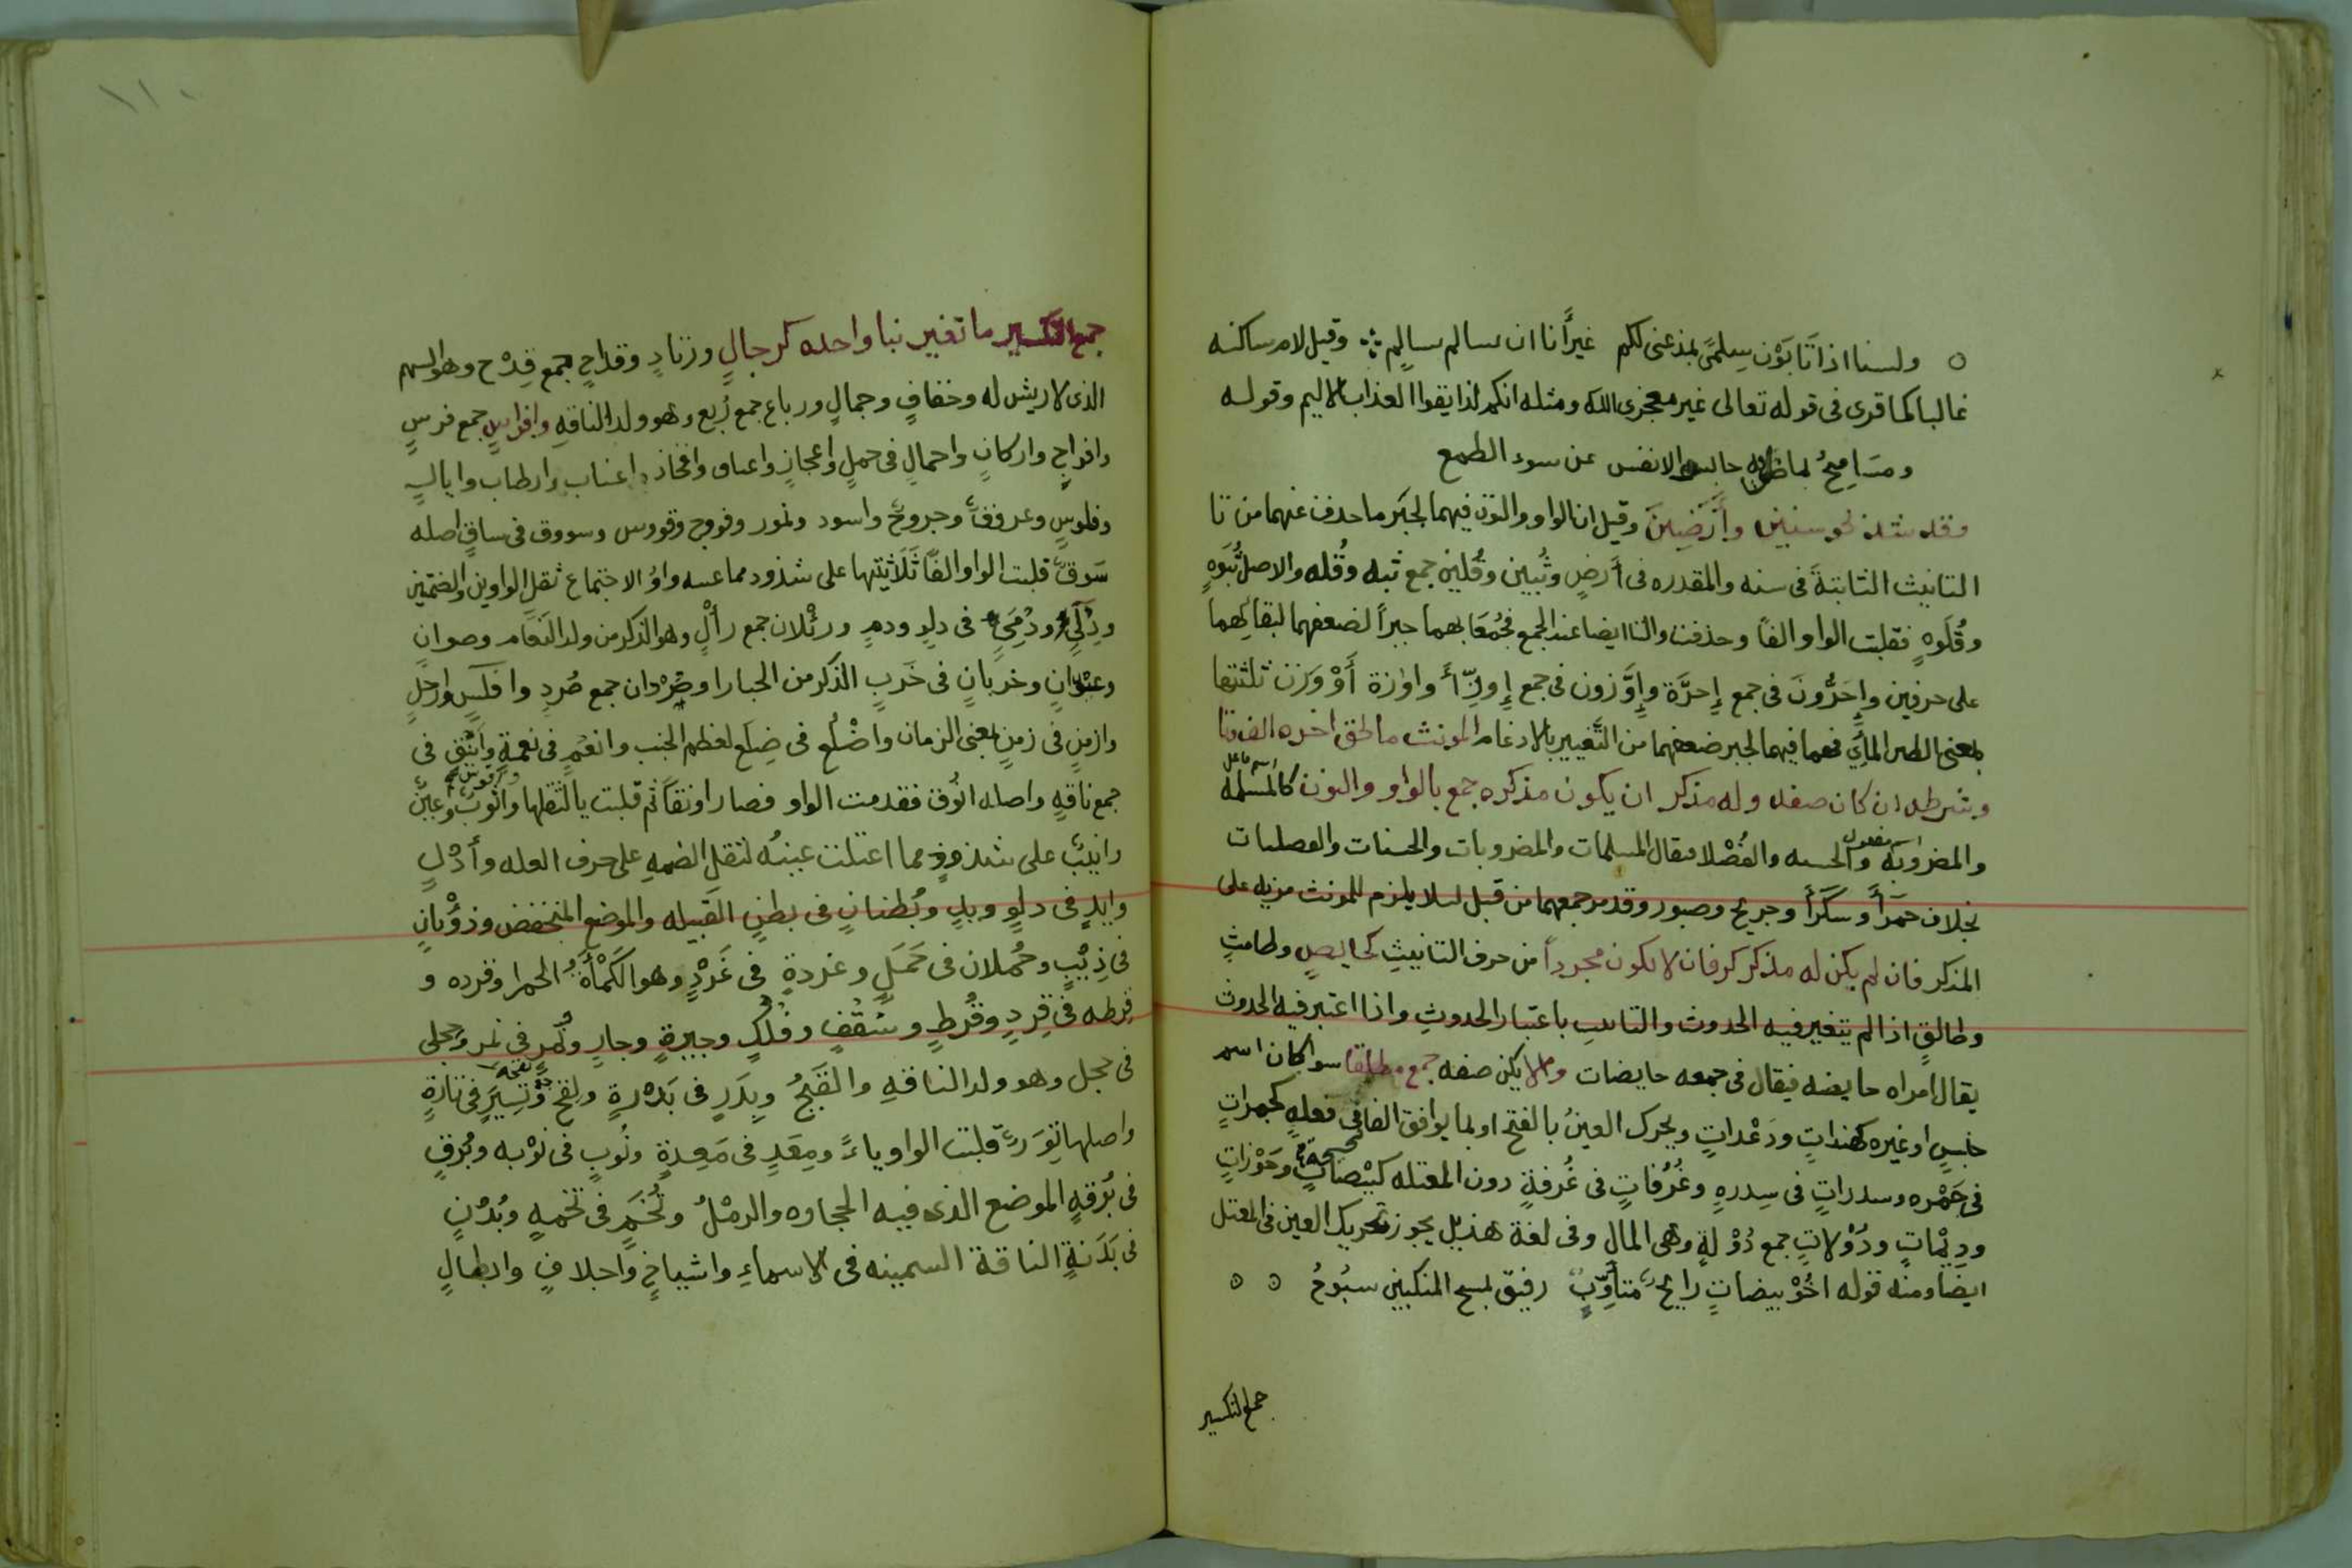 ولسنا اذا تابون سلمى بمذعنى لكم غير أنا ان نسالم سالم وقيل لام ساكنه
غالبا كما قرى فى قوله تعالى غير معجزى الله ومثله انكم لذايقوا العذاب الاليم وقوله
ومساميح بما ضن به حابسوا الانفس عن سوء الطمع
وقد شذ نحو سنين وأرضين وقيل ان الواو والنون فيهما لجبر ما حذف عنهما من تا
التانيث الثابتة فى سنه والمقدره فى أرض وثُبين وقُلين جمع ثبه وقُله والاصل ثُبَوَه
وقُلَوه فقلبت الواو الفا وحذفت والتا ايضا عند الجمع فجُمعا بهما جبراً لضعفهما لبقائهما
على حرفين وإحَرُّونَ فى جمع إحرَّة وإوَزون فى جمع
بمعنى الطير المائى فهما فيهما لجبر ضعفهما من التغيير بالادغام المونث ما لحق اخره الف وتا
وشرطه ان كان صفه وله مذكر ان يكون مذكره جمع بالواو والنون كالمسلمة
اسم فاعل
والمضروبة والحسنه والفُضْلا فيقال المسلمات والمضروبات والحسنات والفضليات
اسم مفعول
بخلاف حمرأ وسكرأ وجريح وصبور وقد مر جمعهما من قبل لئلا يلزم للمونث مزيه على
المذكر فان لم يكن له مذكر كرفان لا يكون مجرداً من حرف التانيثِ كحايض وطامث
وطالقٍ اذا لم يتغير فيه الحدوث والتانيث باعتبار الحدوثِ واذا اعتبر فيه الحدوث
يقال امراه حايضه فيقال فى جمعه حايضات والا يكن صفه جمع مطلقا سوا كان اسم
جنسٍ او غيره كهنداتٍ ودَعْداتٍ ويحرك العينُ بالفتح او بما يوافق الفا فى فعلهٍ كجمراتٍ
فى جَمْره وسدراتٍ فى سِدرهٍ وغُرُفاتٍ فى غُرفةٍ دون المعتله كبيْضاتٍ وجَوْزاتٍ
صحيحة
ودِيْماتٍ ودُوْلاتٍ جمع دُوْلةٍ وهى المال وفى لغة هذيل يجوز تحريك العين فى المعتل
ايضا ومنه قوله اخُوْ بيضاتٍ رايحٌ متأوِّبٌ رفيق بمسح المنكبين سبُوحُ
جمع التكسير
١١٠
جمع التكسير ما تغير بنا واحده كرجالٍ وزنادٍ وقداحٍ جمع قِدْح وهو السهم
الذى لا ريش له وخفافٍ وجمالٍ ورباع جمع رُبع وهو ولد الناقهِ وافراسٍ جمع فرسٍ
وافراخٍ واركانٍ واحمالٍ فى حملٍ واعجازٍ واعناق وافخاذ واعناب وارطاب وابالٍ
وفلوسٍ وعروقٍ وجروحٍ واسود ونمور وفووج وقووس وسووق فى ساقٍ اصله
سَوقٌ قلبت الواو الفاً ثَلَاثيتها على شذوذ مما عينه واوُ لاجتماع ثقل الواوين والضمتين
ودُلَىٍّ ودُمَىٍّ فى دلوٍ ودمٍ ورئْلان جمع رألٍ وهو الذكر من ولد النَعَام وصوان
وعيْدانٍ وخربانٍ فى خَرَبٍ الذكر من الحبارا وصِرْدان جمع صُردٍ وافلسٍ وارجلٍ
وازمنٍ فى زمنٍ بمعنى الزمان واضْلُع فى ضِلَع لعظم الجنب وانعُمٍ فى نعمةٍ وأيْنُقٍ فى
جمع ناقهٍ واصله انوُق فقدمت الواو فصار اونقاً ثم قلبت يا لثقلها واثوُبٌ وأعينٌ
وأقوسٌ
وانيبٌ على شذوذٍ مما اعتلت عينهُ لثقل الضمهِ على حرف العله وأدْلٍ
وايدٍ فى دلوٍ ويدٍ وبُطنانٍ فى بطنٍ القبيله والموضع المنخفض وذؤْبانٍ
فى ذِئبٍ وحُملان فى حَمَلٍ وغردةٍ فى غَرْدٍ وهو الكَمْأةُ الحمرا وقرده و
قرطه فى قِردٍ وقُرطٍ وسُقْفٍ وفُلْكٍ وجيرةٍ وجارٍ ونُمْرٍ فى نَمِر وحجلى
فى حجل وهو ولد الناقهِ والقَبَجُ وبِدَرٍ فى بَدْرةٍ ولِقَحٍ وتِيَرٍ فى تارَةٍ
لقحة
واصلها تِوَرٌ قلبت الواو ياءً ومِعَدٍ فى مَعِدةٍ ونُوبٍ فى نوْبه وبُرقٍ
فى بُرقهٍ الموضع الذى فيه الحجاره والرمْلُ وتُخَمٍ فى تخمهٍ وبُدْنٍ
فى بَدَنةٍ الناقة السمينه فى الاسماءِ واشياخٍ واجلافٍ وابطالٍ